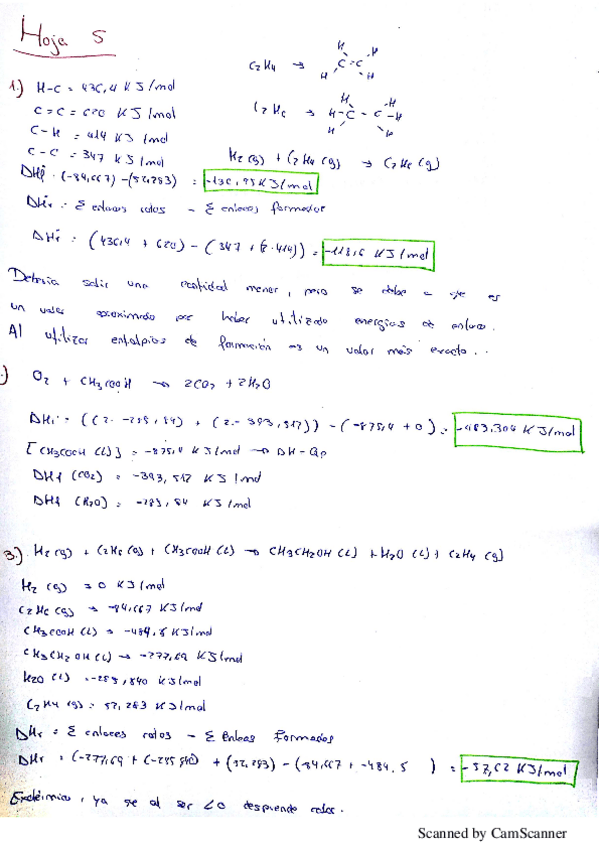 Hoja 5
C2H4 →
H H
C = C
H H
1.) H-C = 436,4 KJ/mol
C=C = 620 KJ/mol
C2H6 →
H H
H-C - C-H
H H
C-H = 414 KJ/mol
C-C = 347 KJ/mol
H2(g) + C2H4(g) → C2H6(g)
DHf: (-84,667)-(52,283) = -136,95 KJ/mol
DHr: Σ enlaces rotos - Σ enlaces formados
DHr: (436,4 + 620) - (347 + (2·414)) = -118,6 KJ/mol
Debería salir una cantidad menor, pero se debe a que es
un valor aproximado por haber utilizado energías de enlace.
Al utilizar entalpías de formación es un valor más exacto..
.) O2 + CH3COOH → 2CO2 + 2H2O
DHr = ((2·-285,84) + (2·-393,517)) - (-875,4 + 0) = -483,304 KJ/mol
[CH3COOH (l)] = -875,4 KJ/mol → DH-Qp
DHf (CO2) = -393,517 KJ/mol
DHf (H2O) = -285,84 KJ/mol
3.) H2(g) + C2H6(g) + CH3COOH(l) → CH3CH2OH(l) + H2O(l) + C2H4(g)
H2(g) = 0 KJ/mol
C2H6(g) → -84,667 KJ/mol
CH3COOH(l) = -484,5 KJ/mol
CH3CH2OH(l) → -277,69 KJ/mol
H2O(l) = -285,840 KJ/mol
C2H4(g) = 52,283 KJ/mol
DHr = Σ enlaces rotos - Σ enlaces formados
DHr = (-277,69 + (-285,840) + (52,283) - (-84,667 + -484,5 ) = 57,92 KJ/mol
Exotérmica, ya que al ser <0 desprende calor.
Scanned by CamScanner